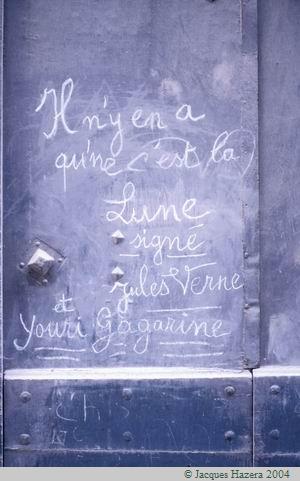 Il n'y en a
qu'une c'est la
Lune
signé
Jules Verne
et
Youri Gagarine
© Jacques Hazera 2004